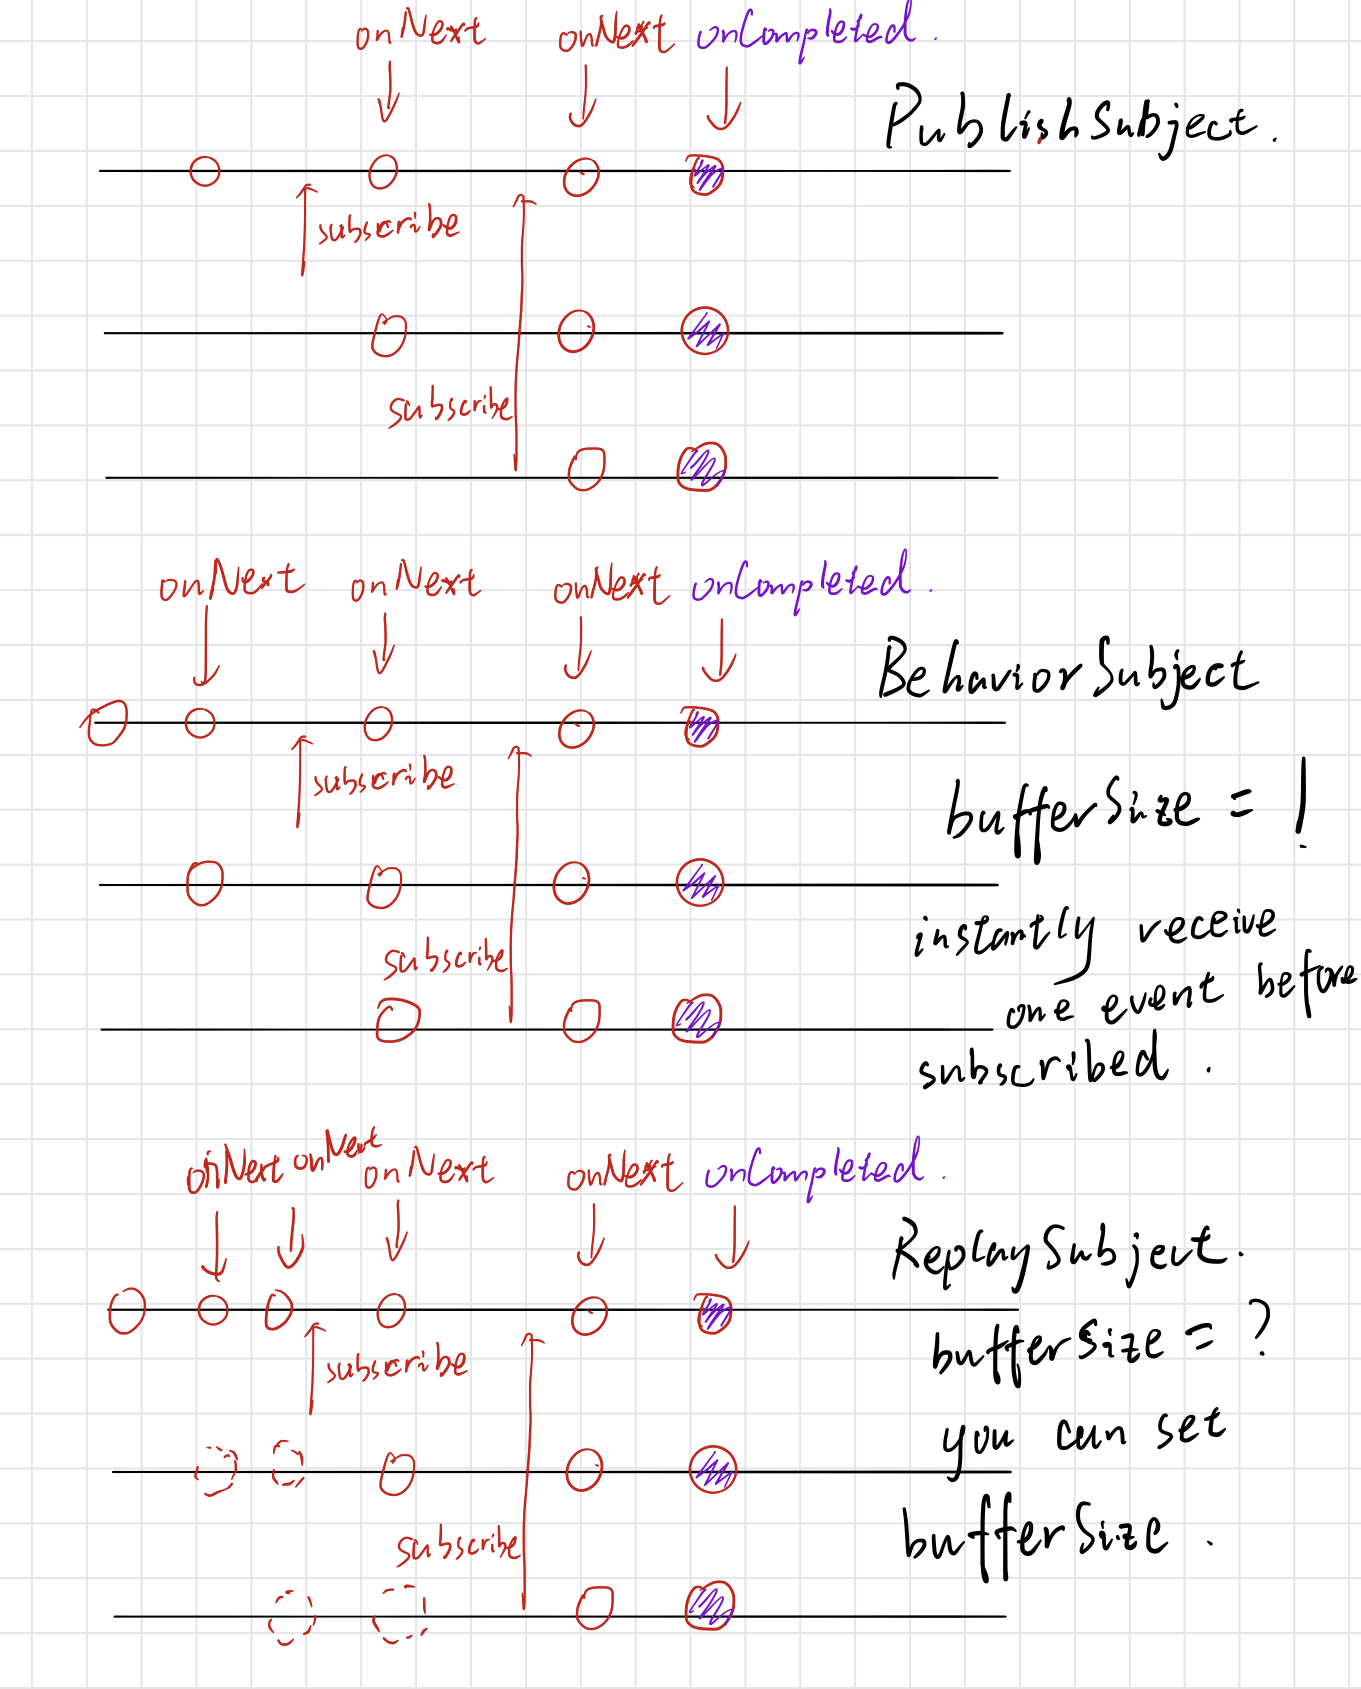 onNext onNext onCompleted.
PublishSubject.
subscribe
subscribe
onNext onNext onNext onCompleted.
BehaviorSubject
subscribe
bufferSize = 1
instantly receive
subscribe
one event before
subscribed.
onNext onNext onNext onNext onCompleted.
ReplaySubject.
bufferSize = ?
subscribe
you can set
bufferSize.
subscribe